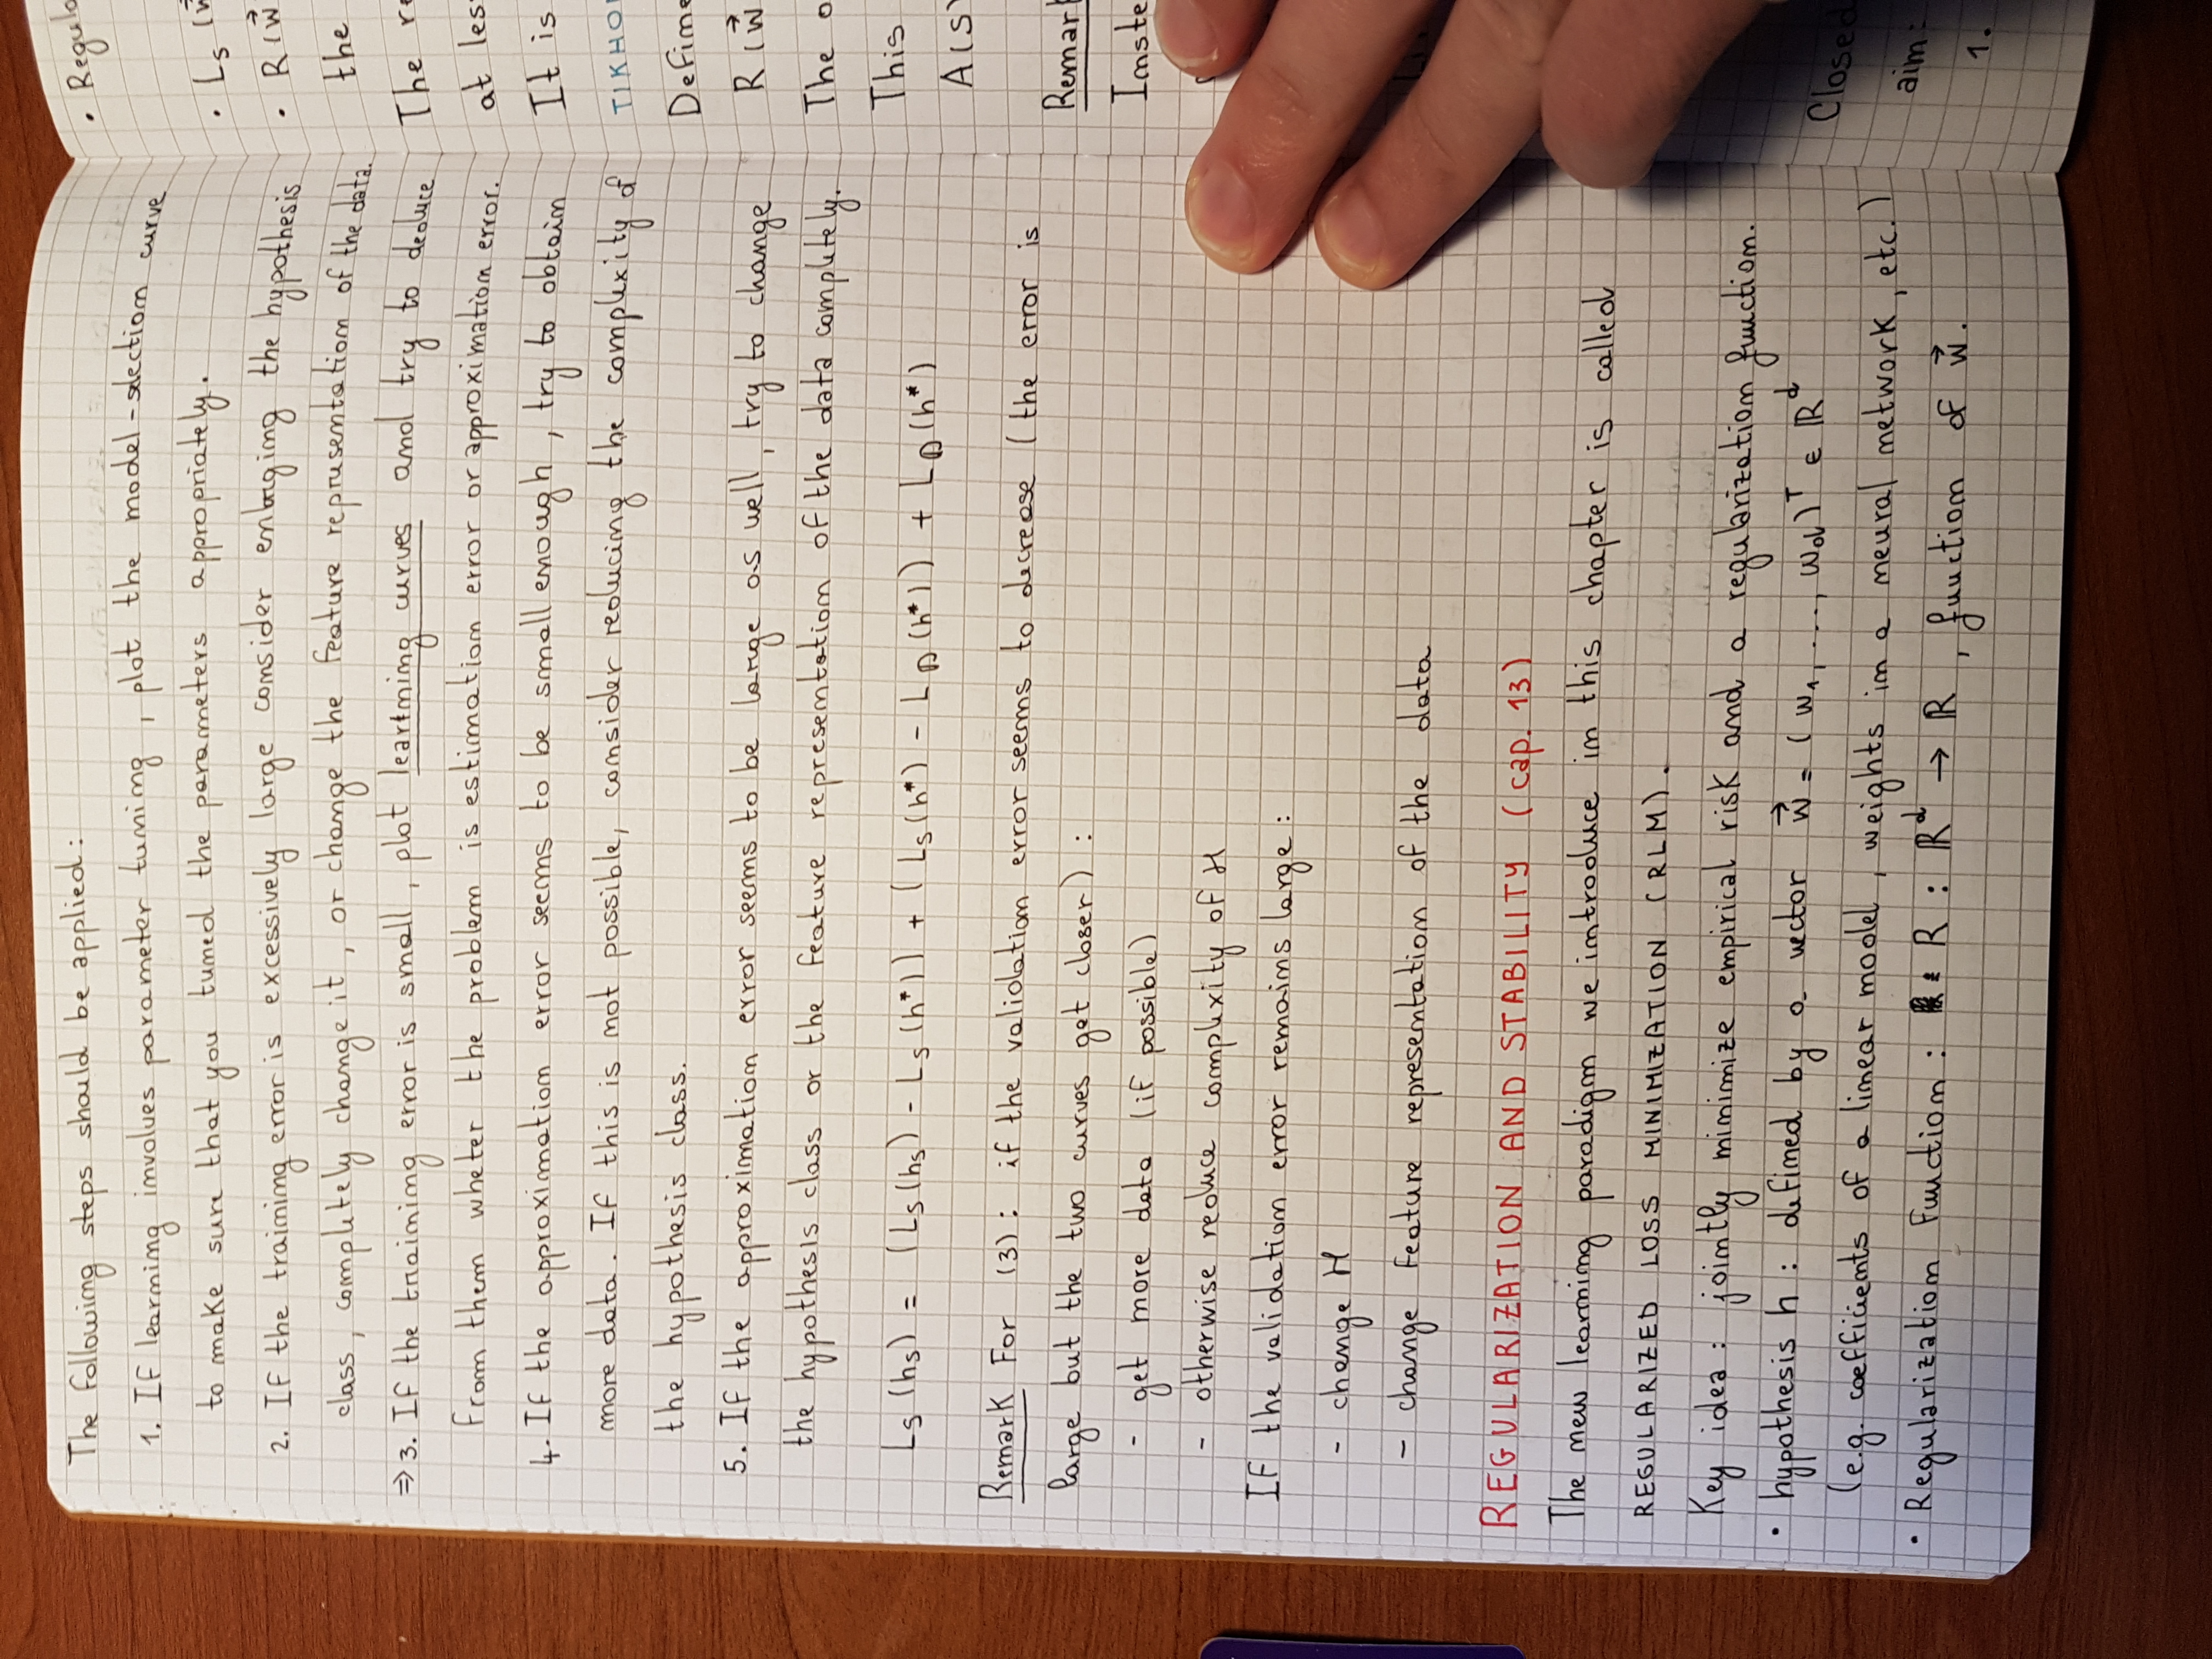 The following steps should be applied:
1. If learning involves parameter tuning, plot the model-selection curve
to make sure that you tuned the parameters appropriately.
2. If the training error is excessively large consider enlarging the hypothesis
class, completely change it, or change the feature representation of the data.
⇒ 3. If the training error is small, plot learning curves and try to deduce
from them wheter the problem is estimation error or approximation error.
4. If the approximation error seems to be small enough, try to obtain
more data. If this is not possible, consider reducing the complexity of
the hypothesis class.
5. If the approximation error seems to be large as well, try to change
the hypothesis class or the feature representation of the data completely.
L_S (h_S) = (L_S (h_S) - L_S (h*)) + (L_S (h*) - L_D (h*)) + L_D (h*)
Remark for (3): if the validation error seems to decrease (the error is
large but the two curves get closer):
- get more data (if possible)
- otherwise reduce complexity of H
If the validation error remains large:
- change H
- change feature representation of the data
REGULARIZATION AND STABILITY (cap. 13)
The new learning paradigm we introduce in this chapter is called
REGULARIZED LOSS MINIMIZATION (RLM).
Key idea: jointly minimize empirical risk and a regularization function.
• hypothesis h: defined by a vector w⃗ = (w₁, ..., w_d)ᵀ ∈ ℝᵈ
(e.g. coefficients of a linear model, weights in a neural network, etc.)
• Regularization function: R : ℝᵈ → ℝ, function of w⃗.
• L_S (
• R (w⃗
the
The
at
It is
Define
R (w⃗
The
This
A(S)
Remark
Closed
aim:
1.